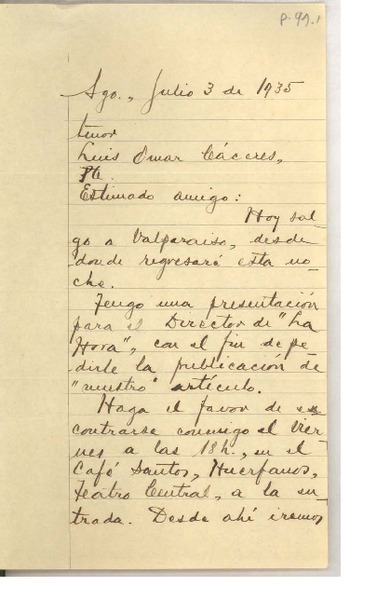 P-99.1
Sgo., Julio 3 de 1935
Señor
Luis Omar Cáceres,
Pte.
Estimado amigo:
Hoy sal-
go a Valparaiso, desde
donde regresaré esta no-
che.
Tengo una presentación
para el Director de "La
Hora", con el fin de pe-
dirle la publicación de
"nuestro" artículo.
Haga el favor de en-
contrarse conmigo el Vier-
nes a las 18h., en el
Café Santos, Huerfanos,
Teatro Central, a la en-
trada. Desde ahí iremos